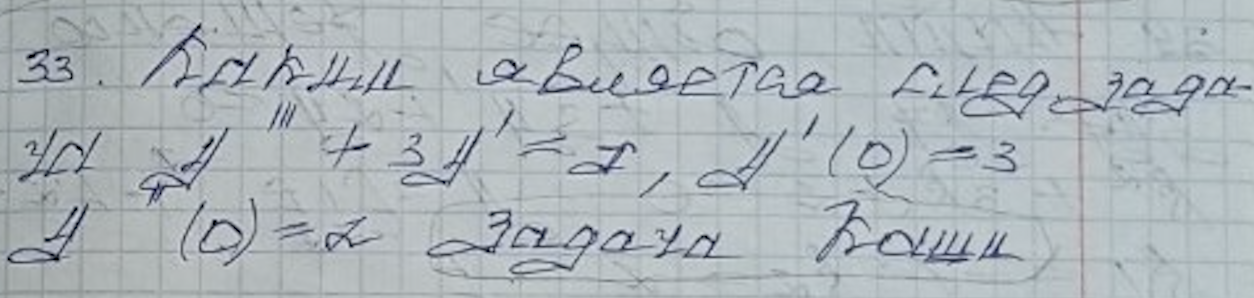 33. Каким является след. зада-
ча y''' + 3y' = x, y'(0) = 3
y''(0) = 2 Задача Коши